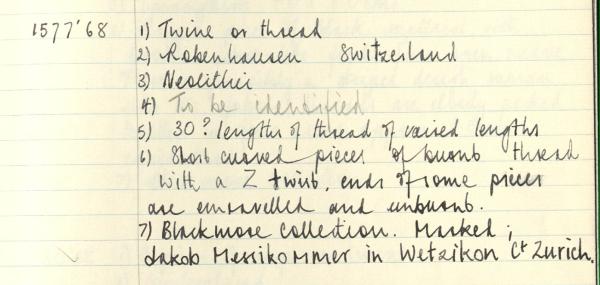 1577'68 1) Twine or thread
2) Robenhausen Switzerland
3) Neolithic
4) To be identified
5) 30? lengths of thread of varied lengths
6) Short curved pieces of burnt thread
with a Z twist, ends of some pieces
are unravelled and unburnt.
7) Blackmore Collection. Marked;
Jakob Messikommer in Wetzikon Ct Zurich.